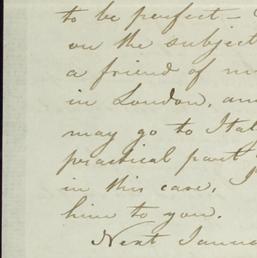 to be perfect –
on the subject
a friend of m
in London, an
may go to Ital
practical part
in this case,
him to you.
Next Janua